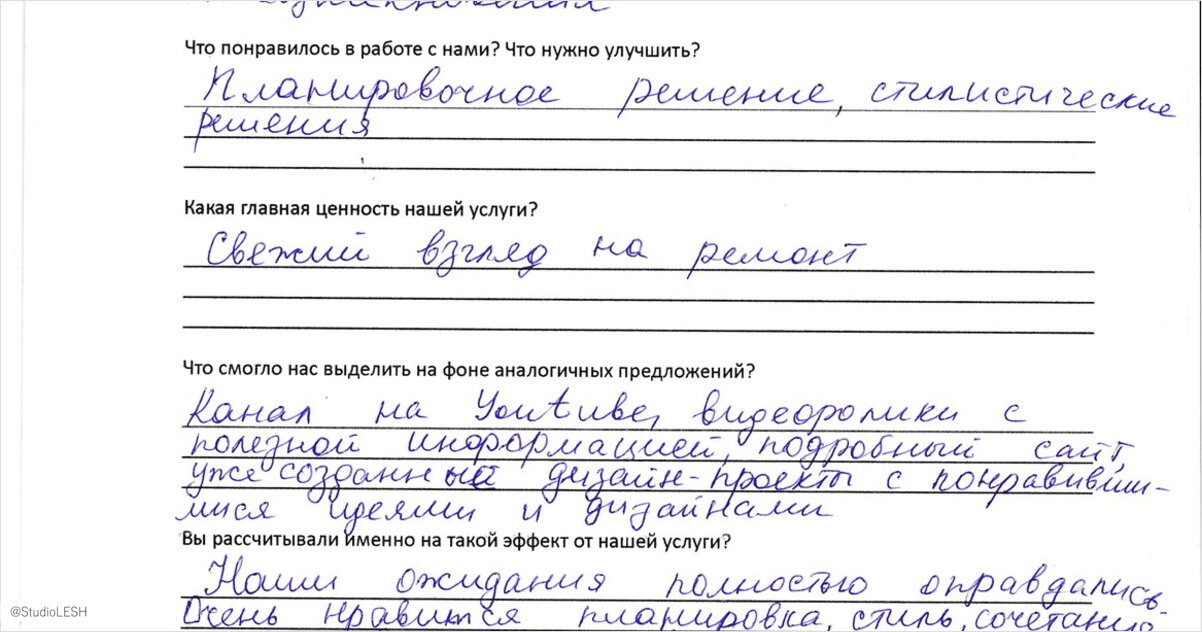 Что понравилось в работе с нами? Что нужно улучшить?
Планировочное решение, стилистические
решения
Какая главная ценность нашей услуги?
Свежий взгляд на ремонт
Что смогло нас выделить на фоне аналогичных предложений?
Канал на Youtube, видеоролики с
полезной информацией, подробный сайт,
уже созданные дизайн-проекты с понравивши-
мися идеями и дизайнами
Вы рассчитывали именно на такой эффект от нашей услуги?
Наши ожидания полностью оправдались.
@StudioLESH
Очень нравится планировка, стиль, сочетание